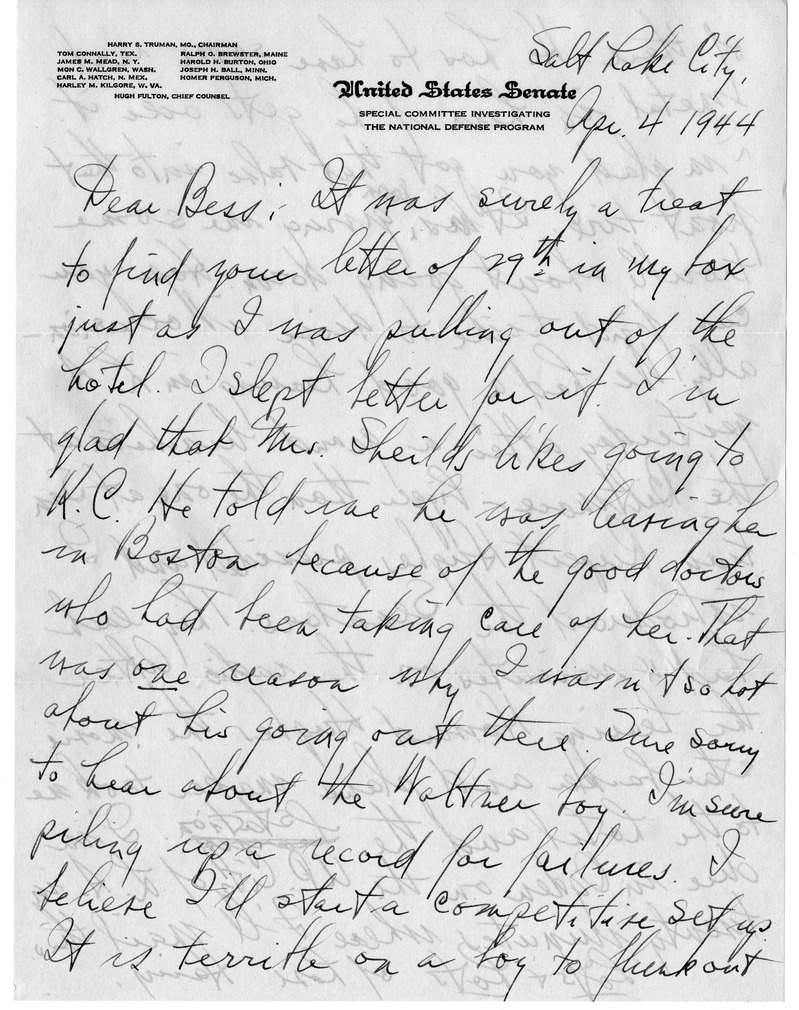 HARRY S. TRUMAN, MO., CHAIRMAN
TOM CONNALLY, TEX. RALPH O. BREWSTER, MAINE
JAMES M. MEAD, N. Y. HAROLD H. BURTON, OHIO
MON C. WALLGREN, WASH. JOSEPH H. BALL, MINN.
CARL A. HATCH, N. MEX. HOMER FERGUSON, MICH.
HARLEY M. KILGORE, W. VA.
HUGH FULTON, CHIEF COUNSEL
United States Senate
SPECIAL COMMITTEE INVESTIGATING
THE NATIONAL DEFENSE PROGRAM
Salt Lake City,
Apr. 4 1944
Dear Bess:- It was surely a treat
to find your letter of 29th in my box
just as I was pulling out of the
hotel. I slept better for it. I'm
glad that Mrs. Sheilds likes going to
K.C. He told me he was leaving her
in Boston because of the good doctors
who had been taking care of her. That
was one reason why I wasn't so hot
about his going out there. Sure sorry
to hear about the Waltner boy. I'm sure
piling up a record for failures. I
believe I'll start a competitive set up.
It is terrible on a boy to flunk out